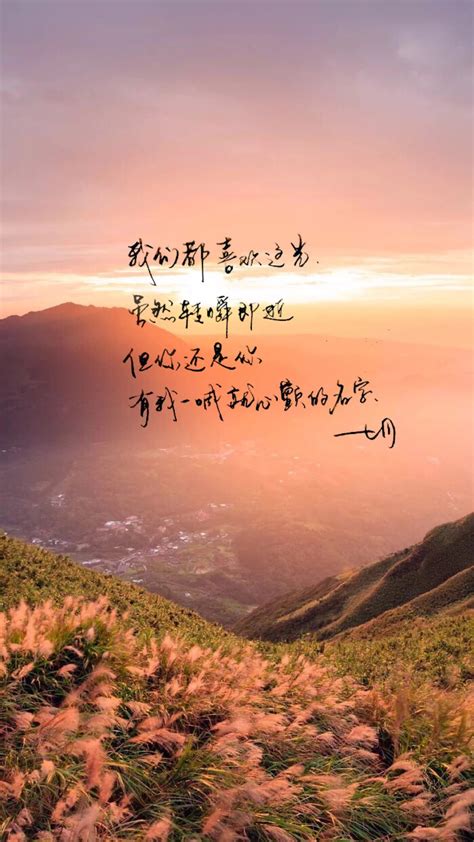 我们都喜欢这光.
虽然轉瞬即逝
但你还是你
有我一喊就心颤的名字.
七月